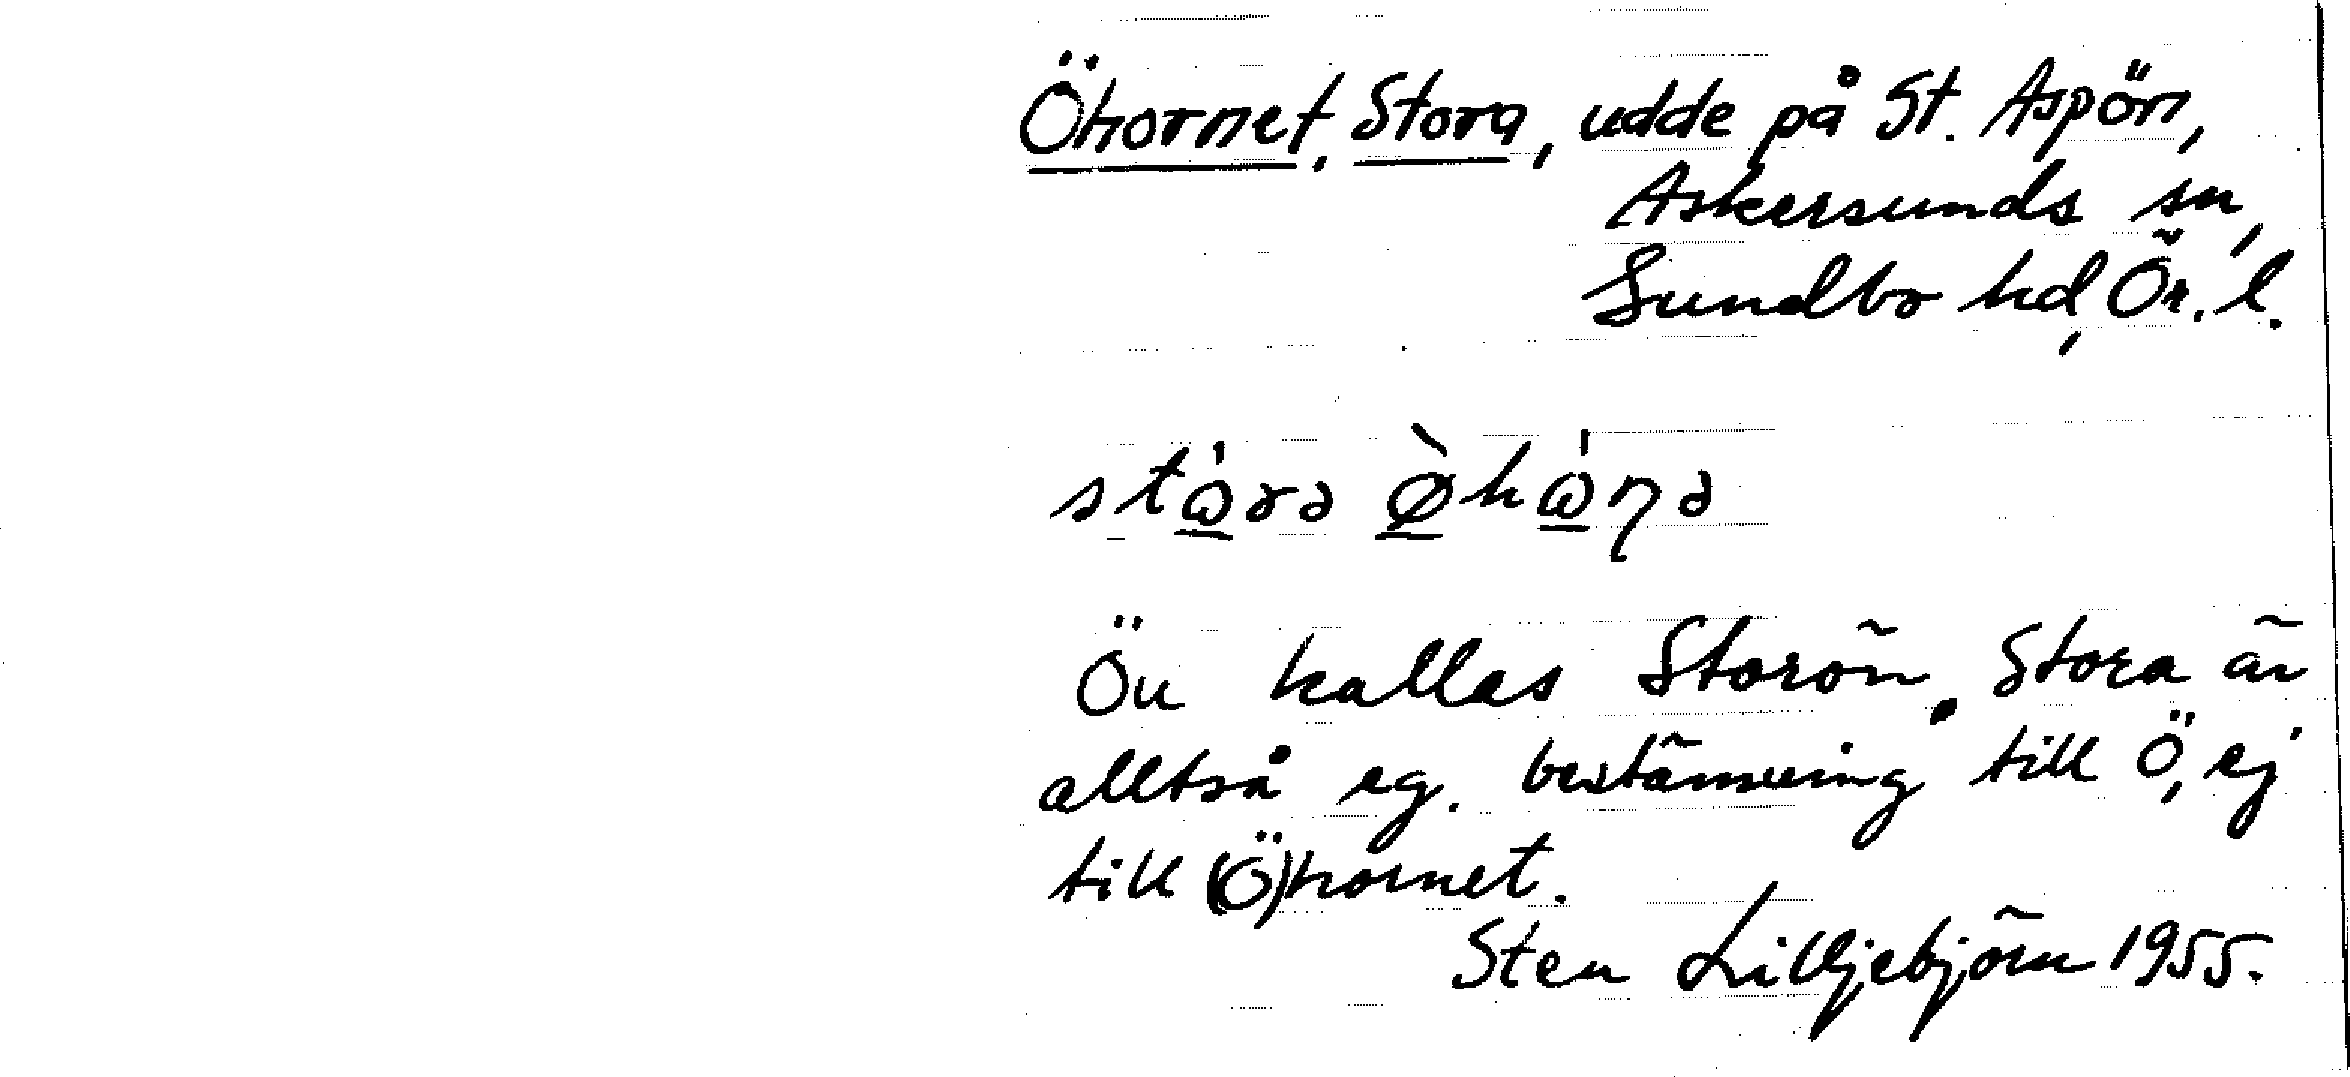 Öhornet, Stora, udde på St. Aspön,
Askersunds sn,
Sundbo hd, Ör. l.
Ön kallas Storön. Stora är
alltså eg. bestämning till Ö, ej
till (Ö)hornet.
Sten Lilljebjörn 1955.